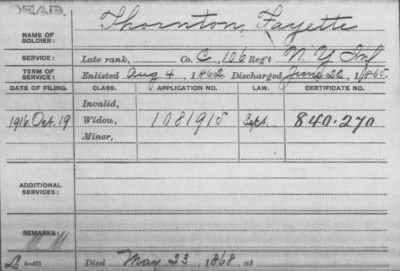 DEAD.
NAME OF SOLDIER: Thornton, Fayette
SERVICE: Late rank, Co. C, 106 Reg't N. Y. Inf
TERM OF SERVICE: Enlisted Aug 4, 1862 Discharged June 22, 1865
DATE OF FILING. CLASS. APPLICATION NO. LAW. CERTIFICATE NO.
Invalid,
1916 Oct. 19 Widow, 1081915 Sept. 840.270
Minor,
ADDITIONAL SERVICES:
REMARKS:
Died May 23, 1868, at